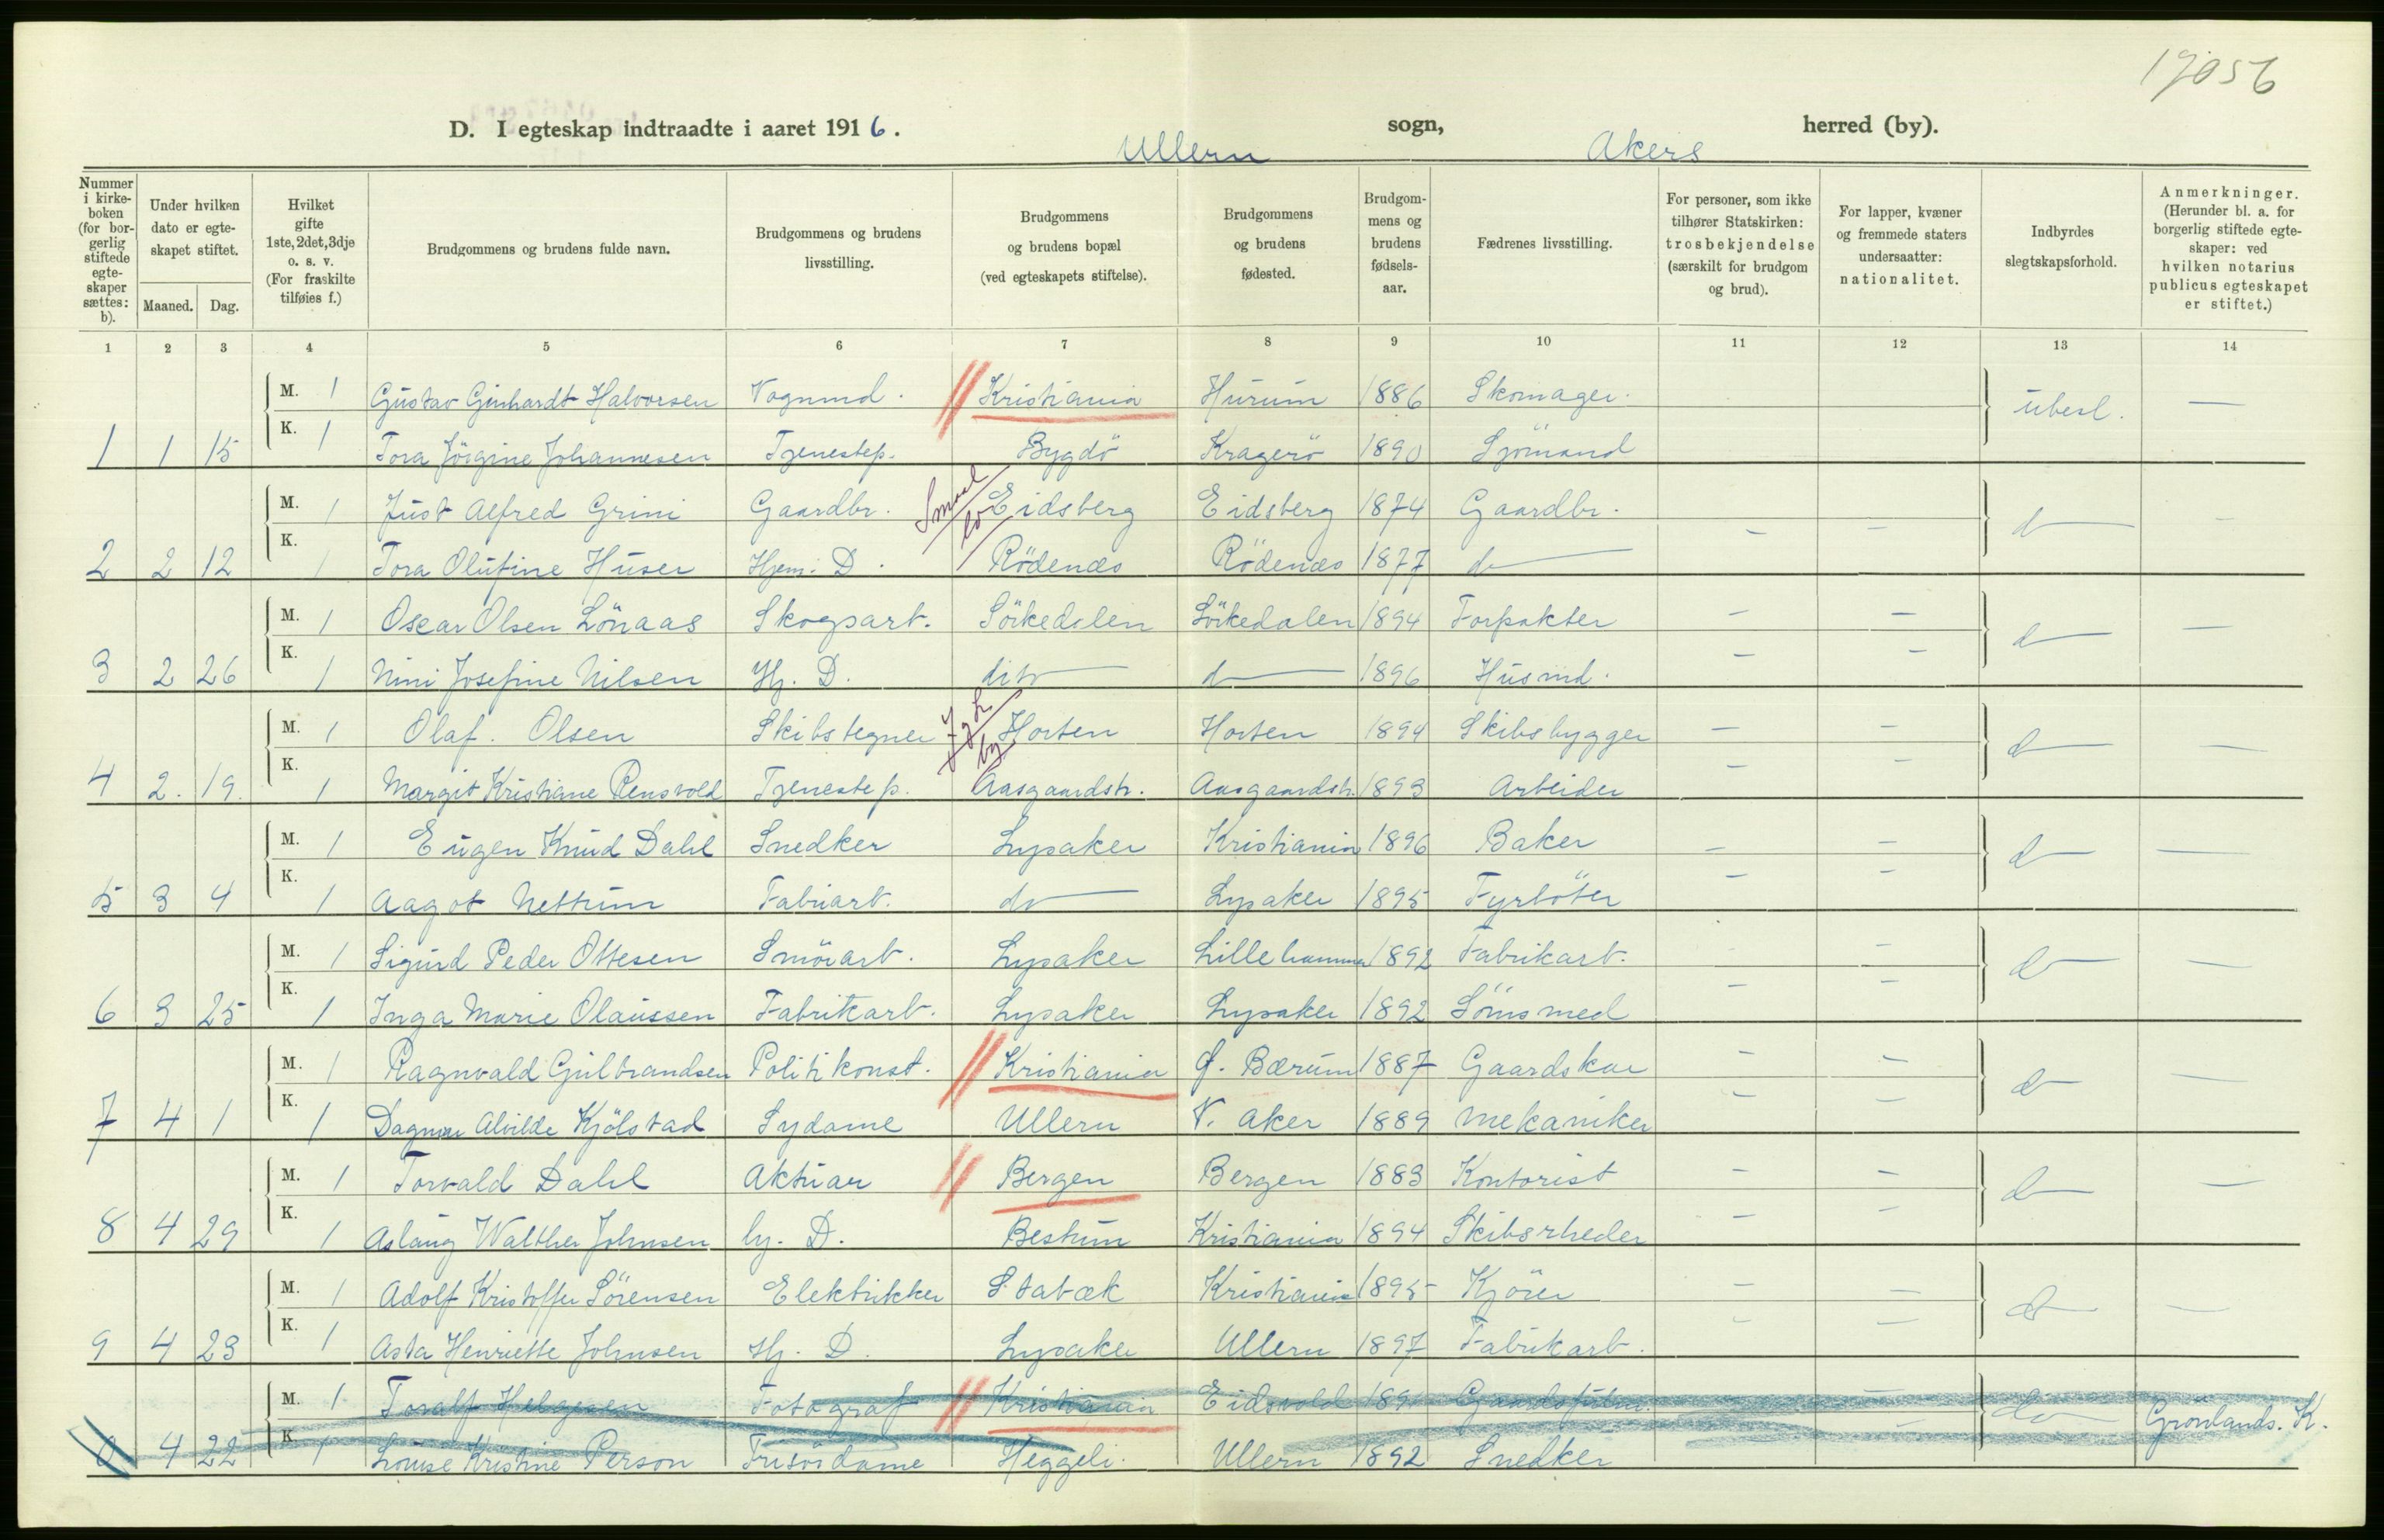 19056
D. I egteskap indtraadte i aaret 1916. Ullern sogn, Akers herred (by).
Nummer i kirke-boken (for bor-gerlig stiftede egte-skaper sættes: b).
Under hvilken dato er egte-skapet stiftet.
Maaned. Dag.
Hvilket gifte 1ste, 2det, 3dje o. s. v. (For fraskilte tilføies f.)
Brudgommens og brudens fulde navn.
Brudgommens og brudens livsstilling.
Brudgommens og brudens bopæl (ved egteskapets stiftelse).
Brudgommens og brudens fødested.
Brudgom-mens og brudens fødsels-aar.
Fædrenes livsstilling.
For personer, som ikke tilhører Statskirken: trosbekjendelse (særskilt for brudgom og brud).
For lapper, kvæner og fremmede staters undersaatter: nationalitet.
Indbyrdes slegtskapsforhold.
Anmerkninger. (Herunder bl. a. for borgerlig stiftede egte-skaper: ved hvilken notarius publicus egteskapet er stiftet.)
1 2 3 4 5 6 7 8 9 10 11 12 13 14
M. 1 Gustav Ginhardt Halvorsen Vognmd. Kristiania Hurum 1886 Skomager. ubesl. —
1 1 15 K. 1 Tora Jörgine Johannesen Tjenestep. Bygdö Kragerö 1890 Sjömand
M. 1 Just Alfred Grini Gaardbr. Eidsberg Eidsberg 1874 Gaardbr. — — d —
2 2 12 K. 1 Tora Olufine Huser Hjem. D. Rödenæs Rödenæs 1877 do
M. 1 Oscar Olsen Lönaas Skogsart. Sörkedalen Sörkedalen 1894 Forpakter — — d —
3 2 26 K. 1 Nini Josefine Nilsen Hj. D. dito d 1896 Husmd. — —
M. 1 Olaf. Olsen Skibstegner Horten Horten 1894 Skibsbygger — — d —
4 2. 19. K. 1 Margit Kristiane Rensvold Tjenestep. Aasgaardstr. Aasgaardstr. 1893 Arbeider — —
M. 1 Eugen Knud Dahl Snedker Lysaker Kristiania 1896 Baker — — d —
5 3 4 K. 1 Aagot Nettum Fabriart. do Lysaker 1895 Fyrböter — —
M. 1 Sigurd Peder Ottesen Smörarb. Lysaker Lillehammer 1892 Fabrikarb. — — d —
6 3 25 K. 1 Inga Marie Olaussen Fabrikarb. Lysaker Lysaker 1892 Sömsmed — —
M. 1 Ragnvald Gulbrandsen Politikonst. Kristiania Ø. Bærum 1887 Gaardskar — — d —
7 4 1 K. 1 Dagmar Alvilde Kjölstad Sydame Ullern V. Aker 1889 Mekaniker — —
M. 1 Torvald Dahl Aktuar Bergen Bergen 1883 Kontorist — — d —
8 4 29 K. 1 Aslaug Walther Johnsen hj. D. Bestum Kristiania 1894 Skibsrheder — —
M. 1 Adolf Kristoffer Sörensen Elektrikker Stabæk Kristiania 1895 Kjörer — — d —
9 4 23 K. 1 Asta Henriette Johnsen Hj. D. Lysaker Ullern 1897 Fabrikarb. — —
M. 1 Toralf Helgesen Fotograf Kristiania Eidsvold 189 — do Grönlands. K.
0 4 22 K. 1 Louise Kristine Person Frisördame Heggeli. Ullern 1892 Snedker